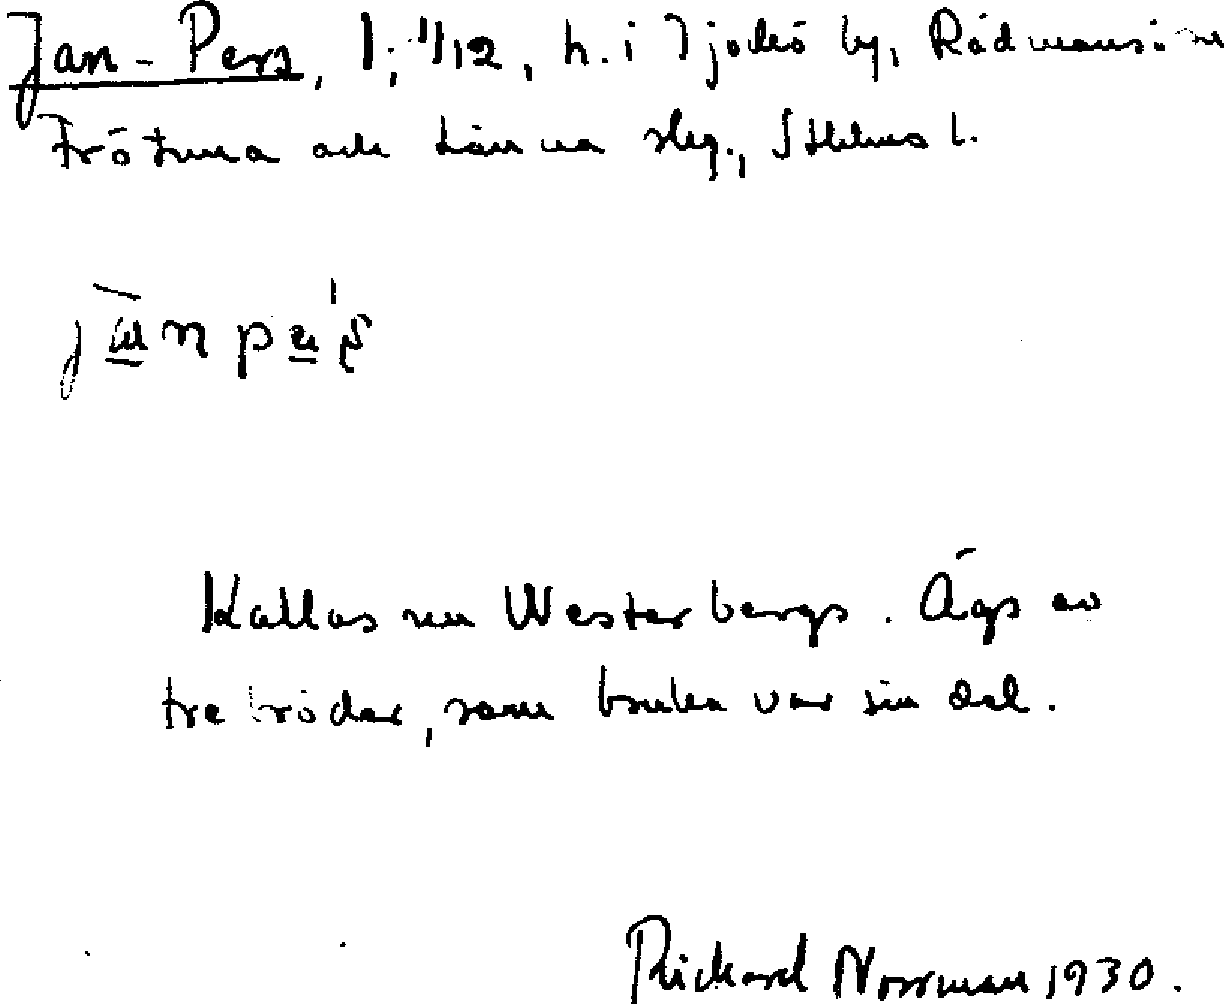 Jan-Pers, 1; 1/12, h. i Tjockö by, Rådmansö sn
Frötuna och Länna slg., Sthlms l.
Kallas nu Westerbergs. Ägs av
tre bröder, som bruka var sin del.
Rickard Norrman 1930.